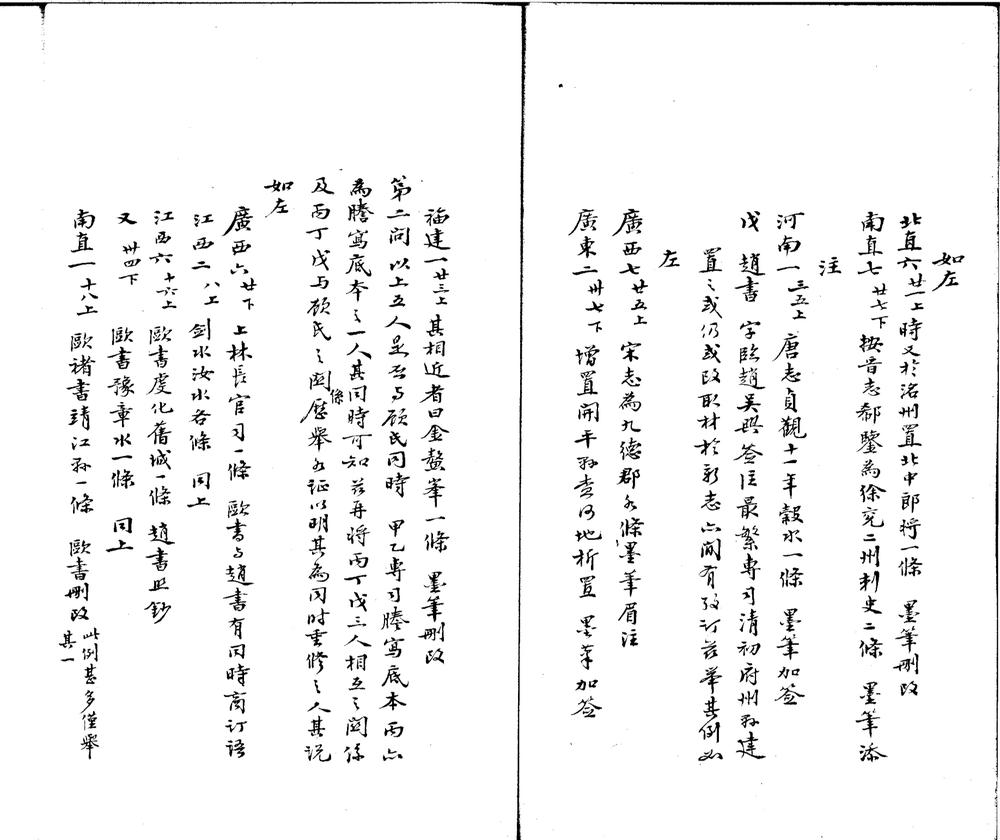 如左
北直六廿一上時又於洺州置北中郎將一條　墨筆刪改
南直七廿七下按晉志郗鑒為徐兗二州刺史二條　墨筆添
注
河南一三五上唐志貞觀十一年穀水一條　墨筆加簽
戊　趙書　字臨趙吳興簽注最繁專司清初府州縣建
置之或仍或改取材於彰志亦間有考訂茲舉其例如
左
廣西七廿五上宋志為九德郡各條墨筆眉注
廣東二卅七下增置開平縣查何地析置　墨筆加簽
福建一廿三上其相近者曰金鼇峯一條　墨筆刪改
第二問　以上五人是否與顧氏同時　甲乙專司謄寫底本丙亦
為謄寫底本之一人其同時可知茲再將丙丁戊三人相互之關係
及丙丁戊與顧氏之關係歷舉各證以明其為同時重修之人其說
如左
廣西六廿下　上林長官司一條　歐書與趙書有同時商訂語
江西二八上　劍水汝水各條　同上
江西六十六上　歐書虔化舊城一條　趙書照鈔
又　卅四下　歐書豫章水一條　同上
南直一十八上　歐褚書靖江縣一條　歐書刪改　此例甚多僅舉其一